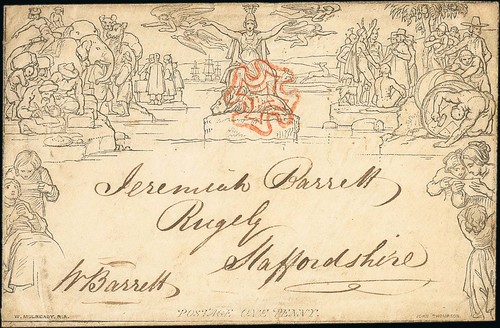 Jeremiah Barrett
Rugely
Staffordshire
W Barrett
POSTAGE ONE PENNY.
W. MULREADY, R.A.
JOHN THOMPSON